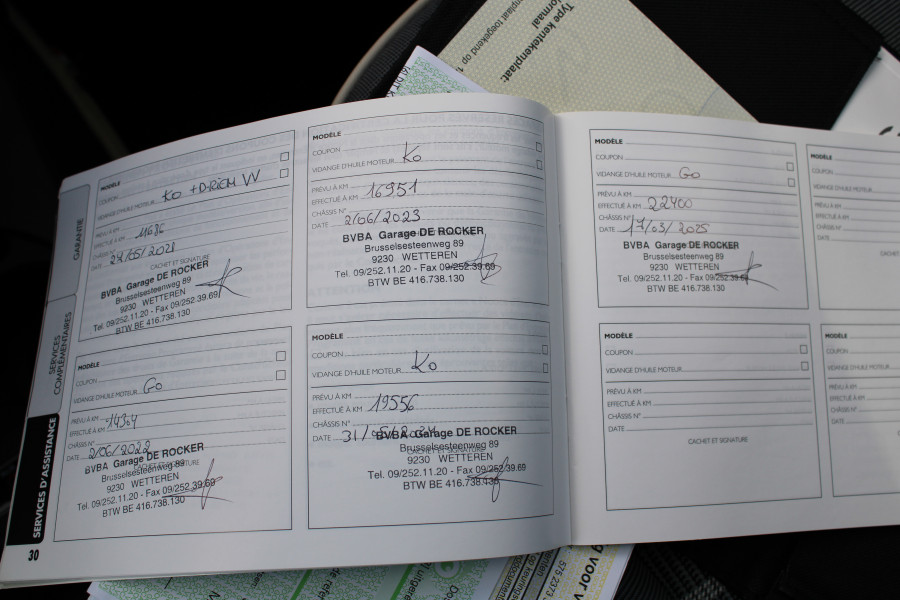 Type kentekenplaat:
Normaal
GARANTIE
SERVICES COMPLÉMENTAIRES
SERVICES D'ASSISTANCE
30
MODÈLE
COUPON
VIDANGE D'HUILE MOTEUR KO
PRÉVU À KM
EFFECTUÉ À KM 11686
CHÂSSIS N°
DATE
CACHET ET SIGNATURE
BVBA Garage DE ROCKER
Brusselsesteenweg 89
9230 WETTEREN
Tel. 09/252.11.20 - Fax 09/252.39.69
BTW BE 416.738.130
MODÈLE
COUPON
VIDANGE D'HUILE MOTEUR GO
PRÉVU À KM
EFFECTUÉ À KM 14364
CHÂSSIS N°
DATE 2/06/2022
CACHET ET SIGNATURE
BVBA Garage DE ROCKER
Brusselsesteenweg 89
9230 WETTEREN
Tel. 09/252.11.20 - Fax 09/252.39.69
BTW BE 416.738.130
MODÈLE
COUPON
VIDANGE D'HUILE MOTEUR KO
PRÉVU À KM
EFFECTUÉ À KM 16951
CHÂSSIS N°
DATE 2/06/2023
BVBA Garage DE ROCKER
Brusselsesteenweg 89
9230 WETTEREN
Tel. 09/252.11.20 - Fax 09/252.39.69
BTW BE 416.738.130
MODÈLE
COUPON
VIDANGE D'HUILE MOTEUR KO
PRÉVU À KM
EFFECTUÉ À KM 19556
CHÂSSIS N°
DATE
BVBA Garage DE ROCKER
CACHET ET SIGNATURE
Brusselsesteenweg 89
9230 WETTEREN
Tel. 09/252.11.20 - Fax 09/252.39.69
BTW BE 416.738.130
MODÈLE
COUPON
VIDANGE D'HUILE MOTEUR GO
PRÉVU À KM
EFFECTUÉ À KM 22400
CHÂSSIS N°
DATE 17/03/2025
BVBA Garage DE ROCKER
Brusselsesteenweg 89
9230 WETTEREN
Tel. 09/252.11.20 - Fax 09/252.39.69
BTW BE 416.738.130
MODÈLE
COUPON
VIDANGE D'HUILE MOTEUR
PRÉVU À KM
EFFECTUÉ À KM
CHÂSSIS N°
DATE
CACHET ET SIGNATURE
MODÈLE
COUPON
VIDANGE D'HUILE
PRÉVU À KM
EFFECTUÉ À KM
CHÂSSIS N°
DATE
MODÈLE
COUPON
VIDANGE D'HUILE
PRÉVU À KM
EFFECTUÉ À KM
CHÂSSIS N°
DATE